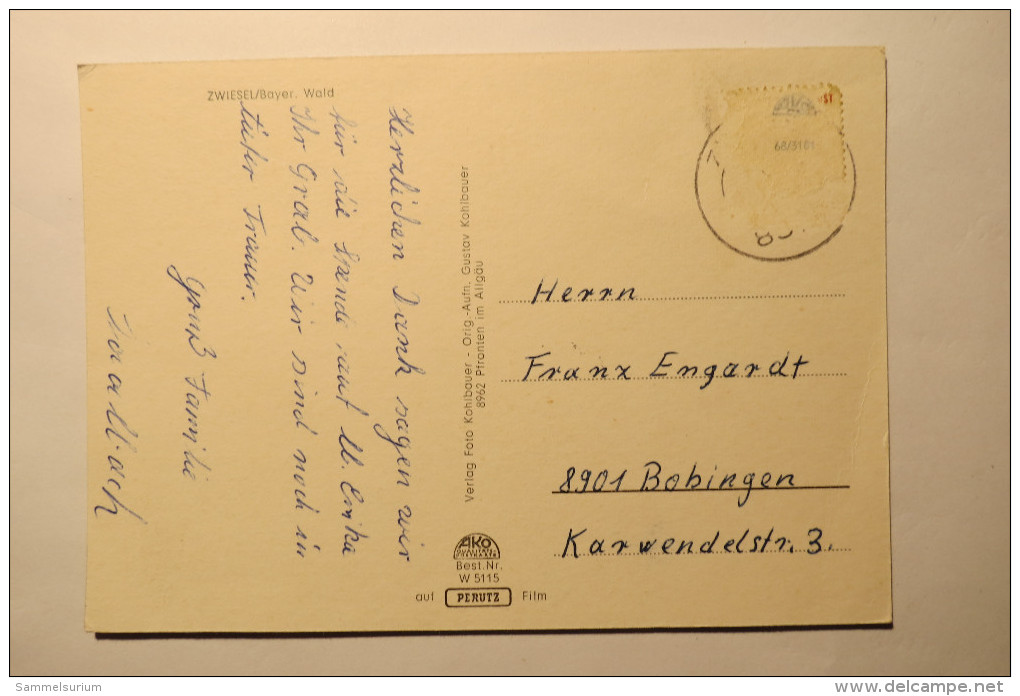 ZWIESEL/Bayer. Wald
Herzlichen Dank sagen wir
für die Spende auf
Ihr Grab. Wir sind noch in
tiefer Trauer.
Gruß Familie
Verlag Foto Kohlbauer - Orig.-Aufn. Gustav Kohlbauer
8962 Pfronten im Allgäu
AKO
Best.Nr.
W 5115
auf PERUTZ Film
68/3101
Herrn
Franz Engardt
8901 Bobingen
Karwendelstr. 3.
Sammelsurium
www.delcampe.net